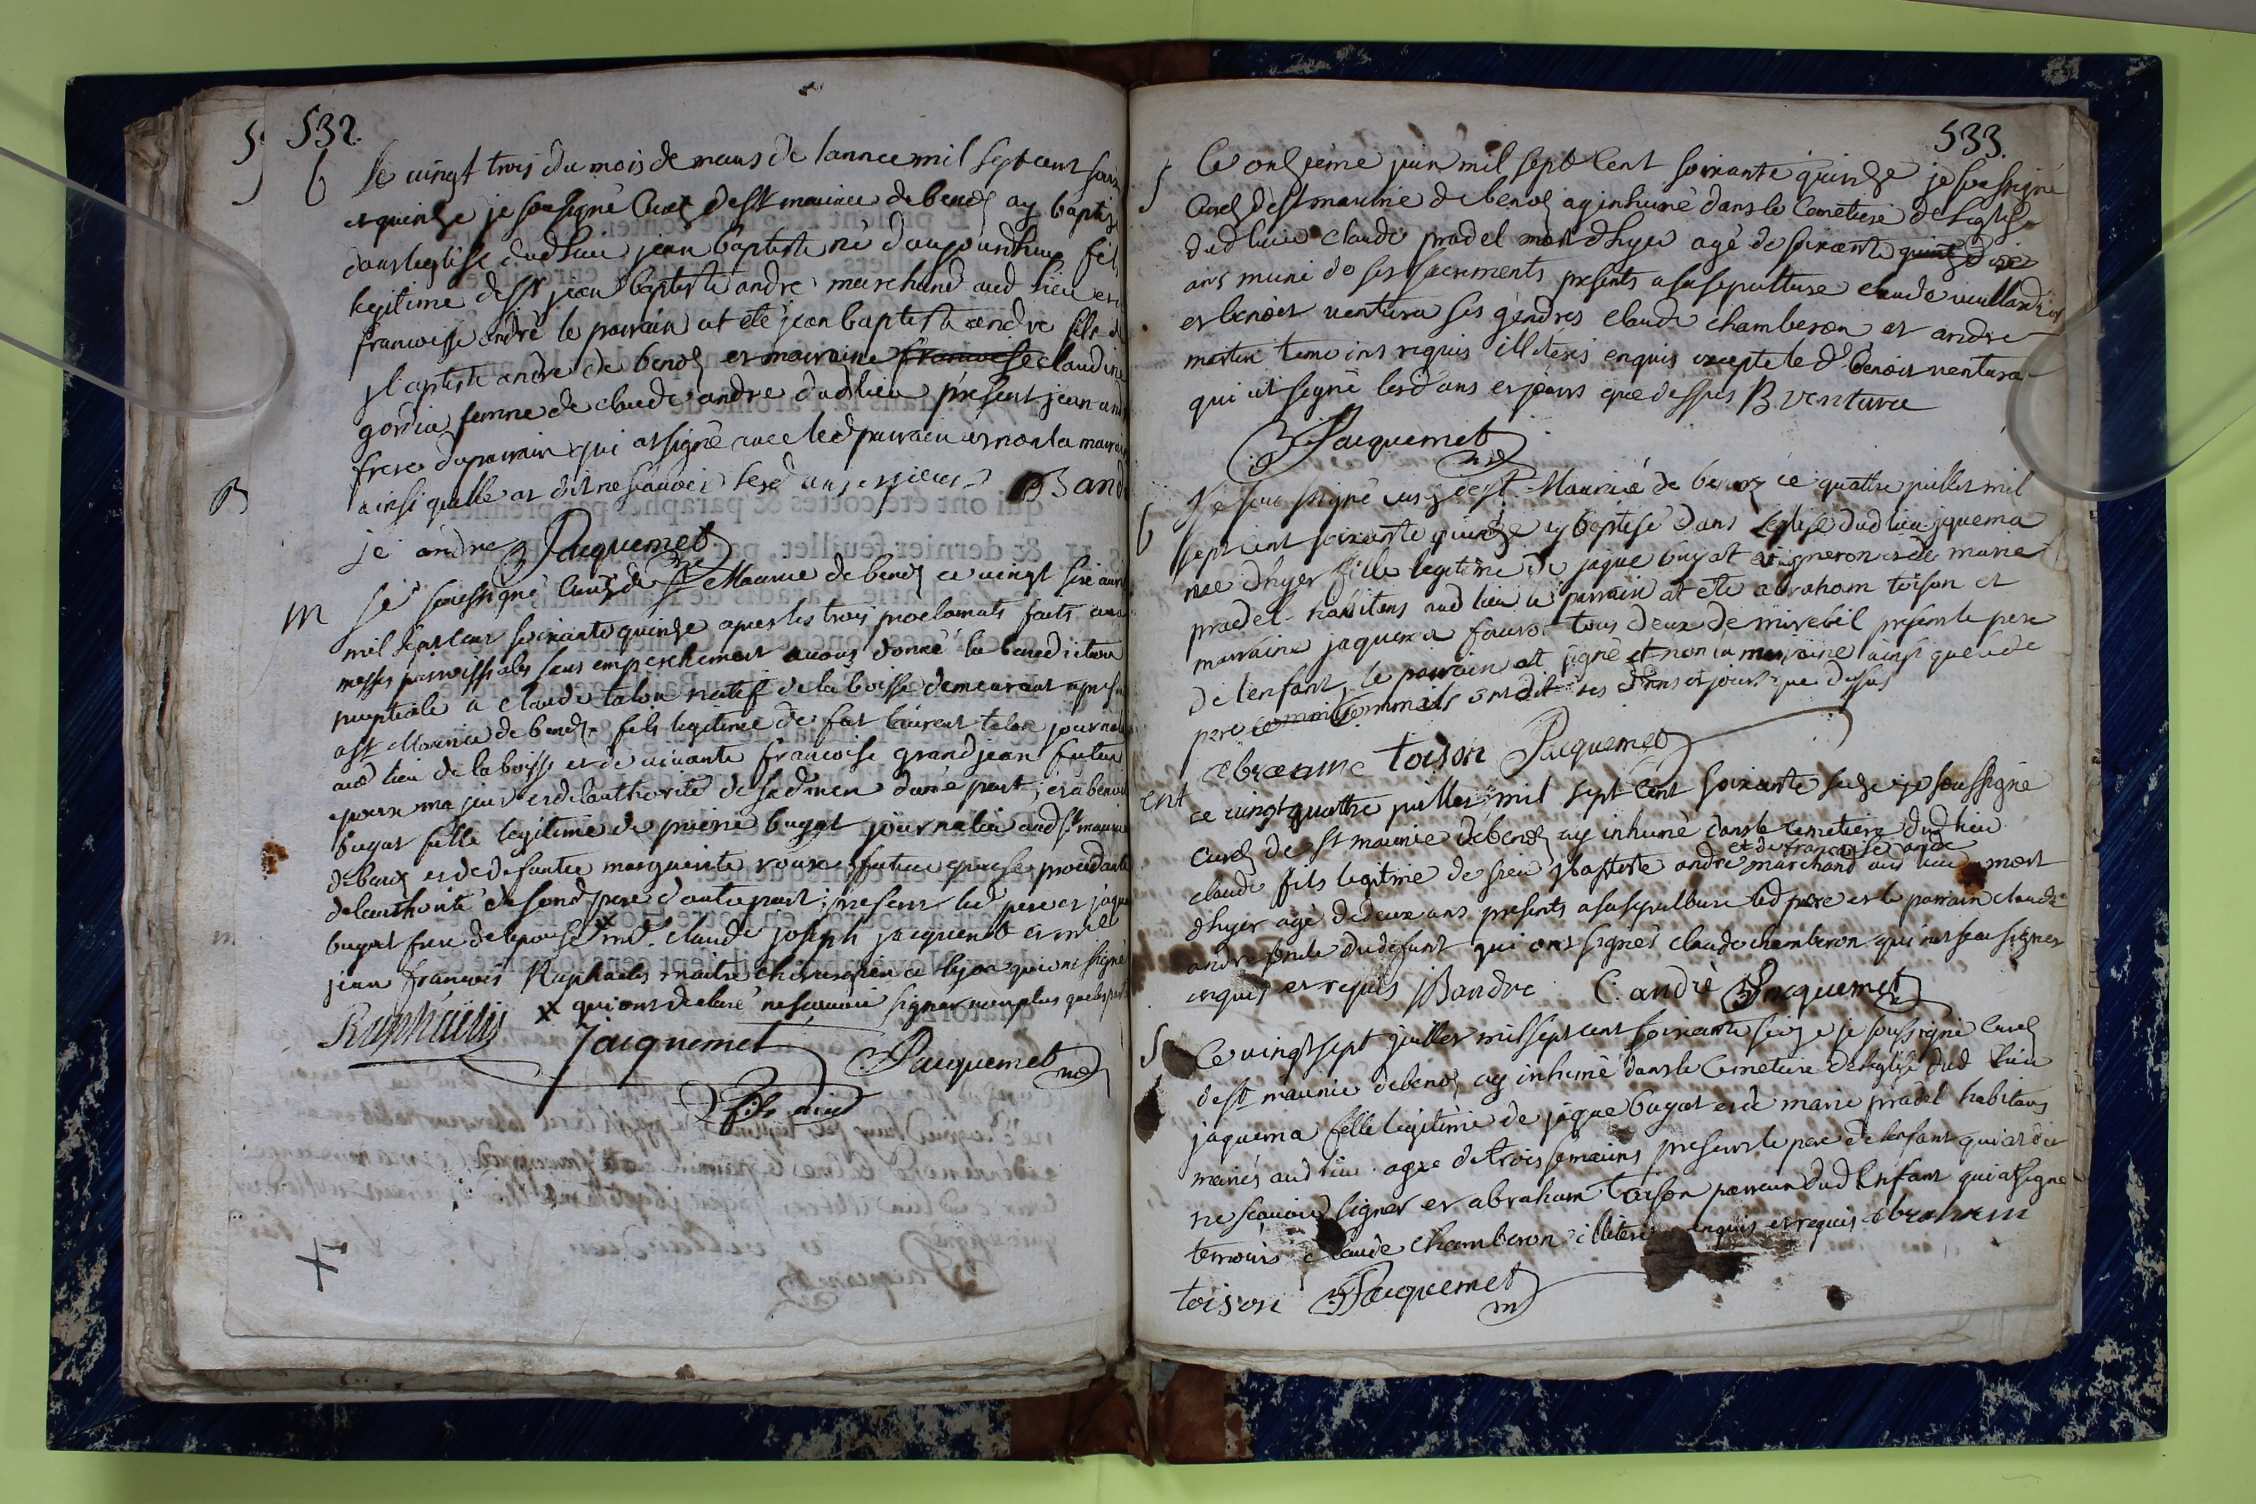 532.
b Le vingt trois du mois de mars de lannee mil sept cent soix
et quinze je soussigné Curé de St maurice de benoz ay baptizé
dans leglise dud lieu jean baptiste né daujourdhuy fils
legitime de Sr jean baptiste andré marchand aud lieu et
francoisse andré le parrain at eté jean baptiste andre fils de
jbaptiste andre de benoz et marraine francoise claudine
femme de claude andre dud lieu présent jean andré
frere du parrain qui at signé avec led parrain et non la marraine
ainsi quelle at dit ne scavoir lesd ans et jour JB andré
je andre Jacquemet
m Je soussigné Curé de St Maurice de benoz ce vingt six avril
mil sept cent soixante quinze apres les trois proclamats faits aux
messes parroissiales sans empeschement avons donné la benediction
nuptiale a claude talon natif de la boisse demeurant apresent
a St Maurice de benoz fils legitime de fut laurent talon journalier
aud lieu de la boisse et de vivante francoise grandjean futur
epoux majeur et de lauthorité de sad mere dune part, et a benoite
bugat fille legitime de pierre bugat journalier aud St maurice
de benoz et de defunte marguerite roux future epouse procedante
de lauthorité de sond pere d'autre part; présent led pere et jaque
bugat frere de lepouse x mr claude joseph jacquemet et mr
jean francois Raphaelis maitre chirurgien a Lyon qui ont signé
x qui ont declaré ne scavoir signer non plus que les parties
Raphaelis Jacquemet Jacquemet
fils ainé
533.
S Ce onzieme juin mil sept cent soixante quinze je soussigné
Curé de St maurice de benoz ay inhumé dans le Cemetiere de leglise
dud lieu claude pradel mort dhyer agé de soixante quinze
ans muni de ses sacrements presents a sa sepulture claude
et benoit ventura ses gendres claude chamberon et andre
martin temoins requis illiteres enquis excepte le d benoit ventura
qui at signé lesd ans et jours que dessus B ventura
Jacquemet
b Je sous signé curé de St Maurice de benoz ce quattre juillet mil
sept cent soixante quinze ay baptisé dans leglise dud lieu jquema
née dhyer fille legitime de jaque bugat vigneron et de marie
pradel habitans aud lieu le parrain at eté abraham toison et
marraine jaquema fauvot tous deux de mirebel présent le pere
de lenfant, le parrain at signé et non la marraine ainsi que le de
pere comm ils ont dit les d ans et jours que dessus
abraame toison Jacquemet
ent ce vingt quattre juillet mil sept cent soixante seize je soussigné
curé de St maurice de benoz ay inhumé dans le cemetiere dud lieu
et de francoise andre
claude fils legitime de sieur jbaptiste andre marchand aud lieu mort
dhyer agé de deux ans presents a sa sepulture led pere et le parrain claude
andre oncle du defunt qui ont signés claude chamberon qui na sceu signer
enquis et requis JBandre C. andré Jacquemet
S Ce vingt sept juillet mil sept cent soixante seize je soussigné Curé
de St maurice de benoz ay inhumé dans le Cemetiere de leglise dud lieu
jaquema fille legitime de jaque bugat et de marie pradel habitans
mariés aud lieu agée de trois semaines present le pere de lenfant qui at dit
ne scavoir signer et abraham toison parrain dud Enfant qui at signé
temoins claude chamberon illiteré enquis et requis abraham
toison Jacquemet